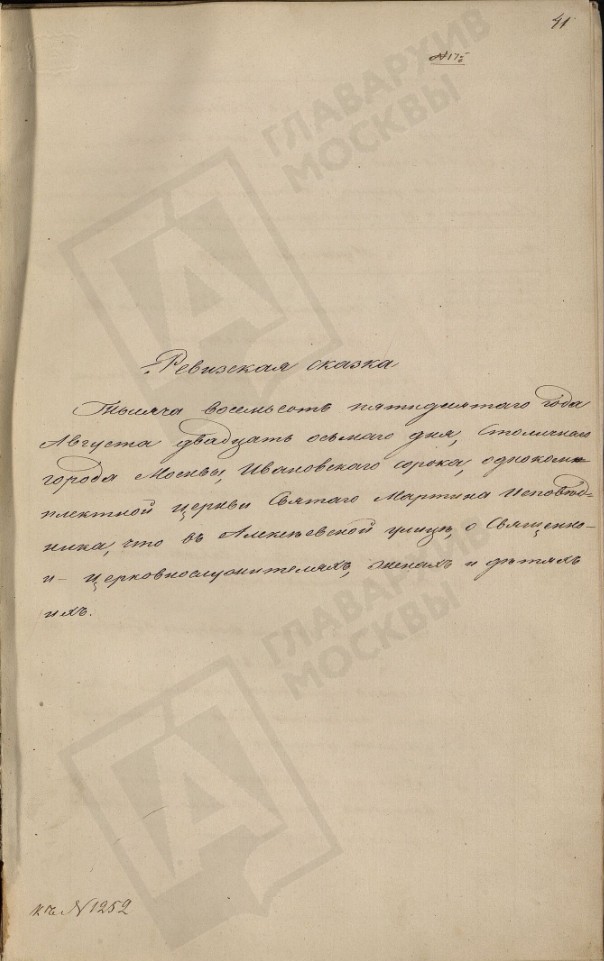 41
№175
ГЛАВАРХИВ
МОСКВЫ
Ревизская сказка
Тысяча восемьсотъ пятидесятаго года
Августа двадцать осьмаго дня, Столичнаго
города Москвы, Ивановскаго сорока, однокомп-
плектной церкви Святаго Мартина Исповѣд-
ника, что въ Алексѣевской улицѣ, о Священно-
и- церковнослужителяхъ, женахъ и дѣтяхъ
ихъ.
ГЛАВАРХИВ
МОСКВЫ
къ №1252